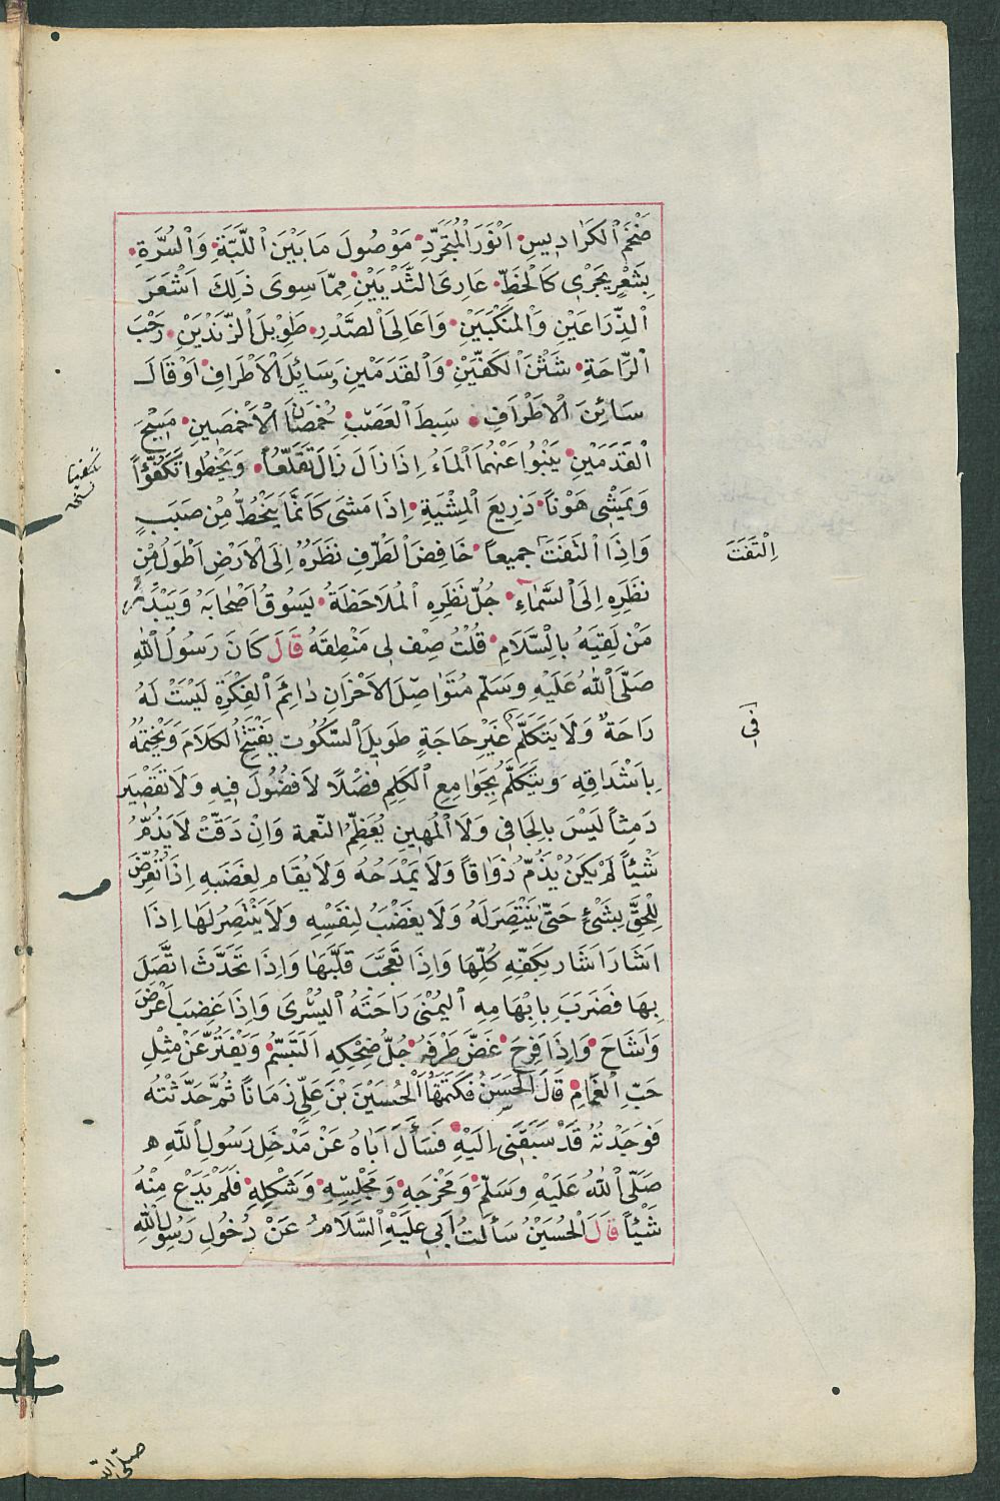 ضَخْمَ الْكَرَادِيسِ اَنْوَرَ الْمُتَجَرِّدِ مَوْصُولَ مَا بَيْنَ اللَّبَّةِ وَالسُّرَّةِ
بِشَعْرٍ يَجْرِي كَالْخَطِّ عَارِىَ الثَّدْيَيْنِ مِمَّا سِوَى ذٰلِكَ اَشْعَرَ
الذِّرَاعَيْنِ وَالْمَنْكِبَيْنِ وَاَعَالِىَ الصَّدْرِ طَوِيلَ الزَّنْدَيْنِ رَحْبَ
الرَّاحَةِ شَثْنَ الْكَفَّيْنِ وَالْقَدَمَيْنِ سَائِلَ الْاَطْرَافِ اَوْ قَالَ
سَائِنَ الْاَطْرَافِ سَبِطَ الْعَصَبِ خُمْصَانَ الْاَخْمَصَيْنِ مَسِيحَ
الْقَدَمَيْنِ يَنْبُوا عَنْهُمَا الْمَاءُ اِذَا زَالَ زَالَ تَقَلُّعًا وَيَخْطُوا تَكَفُّؤًا
وَيَمْشِي هَوْنًا ذَرِيعَ الْمِشْيَةِ اِذَا مَشَى كَاَنَّمَا يَنْحَطُّ مِنْ صَبَبٍ
وَاِذَا الْتَفَتَ جَمِيعًا خَافِضَ الطَّرْفِ نَظَرُهُ اِلَى الْاَرْضِ اَطْوَلُ مِنْ
اِلْتَفَتَ
نَظَرِهِ اِلَى السَّمَاءِ جُلُّ نَظَرِهِ الْمُلَاحَظَةُ يَسُوقُ اَصْحَابَهُ وَيَبْدُرُ
مَنْ لَقِيَهُ بِالسَّلَامِ قُلْتُ صِفْ لِي مَنْطِقَهُ قَالَ كَانَ رَسُولُ اللهِ
صَلَّى اللهُ عَلَيْهِ وَسَلَّمَ مُتَوَاصِلَ الْاَحْزَانِ دَائِمَ الْفِكْرَةِ لَيْسَتْ لَهُ
رَاحَةٌ وَلَا يَتَكَلَّمُ غَيْرِ حَاجَةٍ طَوِيلَ السُّكُوتِ يَفْتَتِحُ الْكَلَامَ وَيَخْتِمُهُ
فِي
بِاَشْدَاقِهِ وَيَتَكَلَّمُ بِجَوَامِعِ الْكَلِمِ فَصْلًا لَا فُضُولَ فِيهِ وَلَا تَقْصِيرَ
دَمِثًا لَيْسَ بِالْجَافِي وَلَا الْمُهِينِ يُعَظِّمُ النِّعْمَةَ وَاِنْ دَقَّتْ لَا يَذُمُّ
شَيْئًا لَمْ يَكُنْ يَذُمُّ ذَوَاقًا وَلَا يَمْدَحُهُ وَلَا يُقَامُ لِغَضَبِهِ اِذَا تُعُرِّضَ
لِلْحَقِّ بِشَيْءٍ حَتَّى يَنْتَصِرَ لَهُ وَلَا يَغْضَبُ لِنَفْسِهِ وَلَا يَنْتَصِرُ لَهَا اِذَا
اَشَارَ اَشَارَ بِكَفِّهِ كُلِّهَا وَاِذَا تَعَجَّبَ قَلَّبَهَا وَاِذَا تَحَدَّثَ اتَّصَلَ
بِهَا فَضَرَبَ بِاِبْهَامِهِ الْيُمْنَى رَاحَتَهُ الْيُسْرَى وَاِذَا غَضِبَ اَعْرَضَ
وَاَشَاحَ وَاِذَا فَرِحَ غَضَّ طَرْفَهُ جُلُّ ضِحْكِهِ التَّبَسُّمُ وَيَفْتَرُّ عَنْ مِثْلِ
حَبِّ الْغَمَامِ قَالَ الْحَسَنُ فَكَتَمْتُهَا الْحُسَيْنَ بْنَ عَلِيٍّ زَمَانًا ثُمَّ حَدَّثْتُهُ
فَوَجَدْتُهُ قَدْ سَبَقَنِي اِلَيْهِ فَسَأَلَ اَبَاهُ عَنْ مَدْخَلِ رَسُولِ اللهِ
صَلَّى اللهُ عَلَيْهِ وَسَلَّمَ وَمَخْرَجِهِ وَمَجْلِسِهِ وَشَكْلِهِ فَلَمْ يَدَعْ مِنْهُ
شَيْئًا قَالَ الْحُسَيْنُ سَأَلْتُ اَبِي عَلَيْهِ السَّلَامُ عَنْ دُخُولِ رَسُولِ اللهِ
صلّى الله